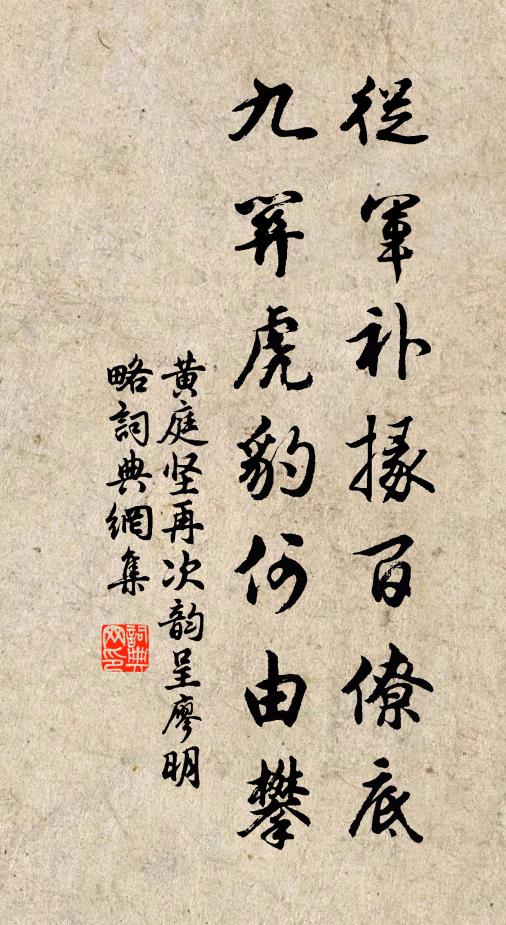 從軍补掾百僚底
九關虎豹何由攀
黄庭坚再次韵呈廖明
略詞典網集
詞典网印